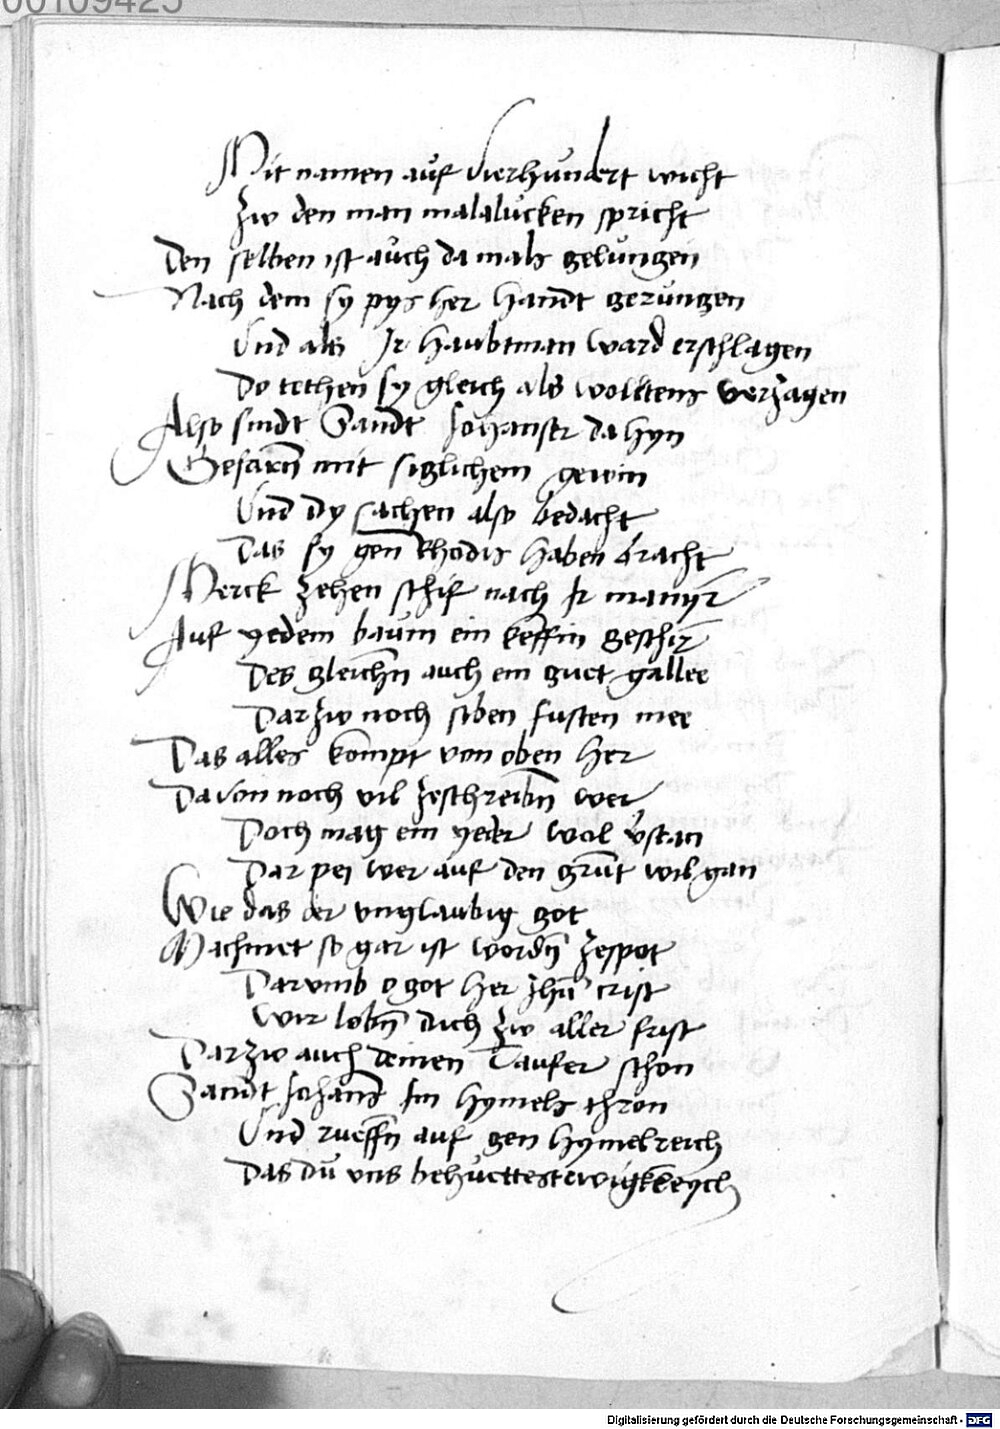 00109425
Mit namen auf vierhundert wicht
Zw den man malalucken spricht
Den selben ist auch damals gelungen
Nach dem sy pys her handt gerungen
Und als Jr haubtman ward erschlagen
Do tethen sy gleich als wolltens verzagen
Also sindt Sandt Johanser dahyn
Gefarñ mit siglichem gewin
Und dy sachen also bedacht
Das sy gen Rhodis haben bracht
Merck zehen schif nach Ir manyr̄
Auf yedem baum ein keffin geschir̄
Des gleichn auch ein guet gallee
Darzw noch siben fusten mee
Das alles kompt von oben her
Davon noch vil zeschreibn̄ wer
Doch mag ein yeder wol v̄stan
Dar pei wer auf den grūt wil gan
Wie das der unglaubig got
Machmet so gar ist wordn̄ zespot
Darumb o got her Jhū crist
Wir lobn̄ dich zw aller frist
Darzw auch deinen Taufer schon
Sandt Johans Im hymels thron
Und rueffn̄ auf gen hymelreich
Das du uns behuettest ewigkleych
Digitalisierung gefördert durch die Deutsche Forschungsgemeinschaft - DFG